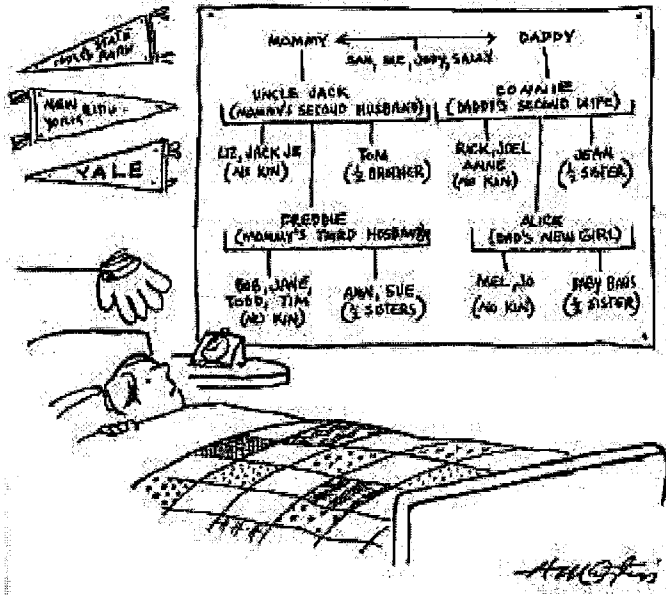 STATE
PARK
NEW
YORK
YALE
MOMMY
DADDY
SAM, SUE, JUDY, SALLY
UNCLE JACK
(MOMMY'S SECOND HUSBAND)
CONNIE
(DADDY'S SECOND WIFE)
LIZ, JACK JR
(NO KIN)
TOM
(½ BROTHER)
RICK, JOEL
ANNE
(NO KIN)
JEAN
(½ SISTER)
FREDDIE
(MOMMY'S THIRD HUSBAND)
ALICE
(DAD'S NEW GIRL)
BOB, JANE,
TODD, TIM
(NO KIN)
ANN, SUE
(½ SISTERS)
MEL, JO
(NO KIN)
BABY BABS
(½ SISTER)